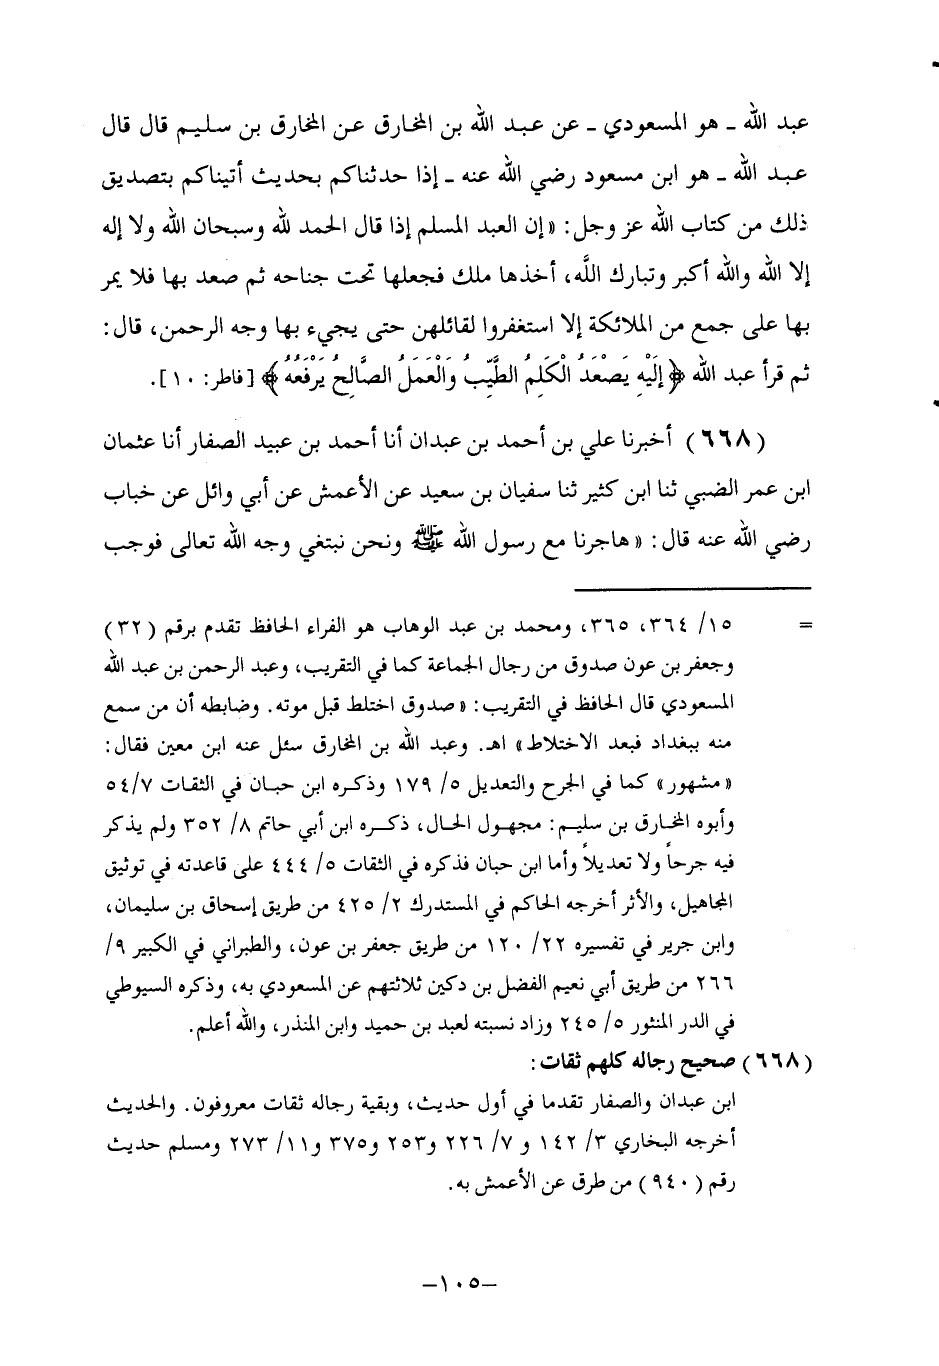 عبد الله ـ هو المسعودي ـ عن عبد الله بن المخارق عن المخارق بن سليم قال قال
عبد الله ـ هو ابن مسعود رضي الله عنه ـ إذا حدثناكم بحديث أتيناكم بتصديق
ذلك من كتاب الله عز وجل: «إن العبد المسلم إذا قال الحمد لله وسبحان الله ولا إله
إلا الله والله أكبر وتبارك اللَّه، أخذها ملك فجعلها تحت جناحه ثم صعد بها فلا يمر
بها على جمع من الملائكة إلا استغفروا لقائلهن حتى يجيء بها وجه الرحمن، قال:
ثم قرأ عبد الله ﴿إِلَيْهِ يَصْعَدُ الْكَلِمُ الطَّيِّبُ وَالْعَمَلُ الصَّالِحُ يَرْفَعُهُ﴾ [فاطر: ١٠].
(٦٦٨) أخبرنا علي بن أحمد بن عبدان أنا أحمد بن عبيد الصفار أنا عثمان
ابن عمر الضبي ثنا ابن كثير ثنا سفيان بن سعيد عن الأعمش عن أبي وائل عن خباب
رضي الله عنه قال: «هاجرنا مع رسول الله ﷺ ونحن نبتغي وجه الله تعالى فوجب
= ١٥/ ٣٦٤، ٣٦٥، ومحمد بن عبد الوهاب هو الفراء الحافظ تقدم برقم (٣٢)
وجعفر بن عون صدوق من رجال الجماعة كما في التقريب، وعبد الرحمن بن عبد الله
المسعودي قال الحافظ في التقريب: «صدوق اختلط قبل موته. وضابطه أن من سمع
منه ببغداد فبعد الاختلاط» اهـ. وعبد الله بن المخارق سئل عنه ابن معين فقال:
«مشهور» كما في الجرح والتعديل ٥/ ١٧٩ وذكره ابن حبان في الثقات ٥٤/٧
وأبوه المخارق بن سليم: مجهول الحال، ذكره ابن أبي حاتم ٨/ ٣٥٢ ولم يذكر
فيه جرحاً ولا تعديلاً وأما ابن حبان فذكره في الثقات ٥/ ٤٤٤ على قاعدته في توثيق
المجاهيل، والأثر أخرجه الحاكم في المستدرك ٢/ ٤٢٥ من طريق إسحاق بن سليمان،
وابن جرير في تفسيره ٢٢/ ١٢٠ من طريق جعفر بن عون، والطبراني في الكبير ٩/
٢٦٦ من طريق أبي نعيم الفضل بن دكين ثلاثتهم عن المسعودي به، وذكره السيوطي
في الدر المنثور ٥/ ٢٤٥ وزاد نسبته لعبد بن حميد وابن المنذر، والله أعلم.
(٦٦٨) صحيح رجاله كلهم ثقات:
ابن عبدان والصفار تقدما في أول حديث، وبقية رجاله ثقات معروفون. والحديث
أخرجه البخاري ٣/ ١٤٢ و ٧/ ٢٢٦ و٢٥٣ و٣٧٥ و١١/ ٢٧٣ ومسلم حديث
رقم (٩٤٠) من طرق عن الأعمش به.
ـ١٠٥ـ